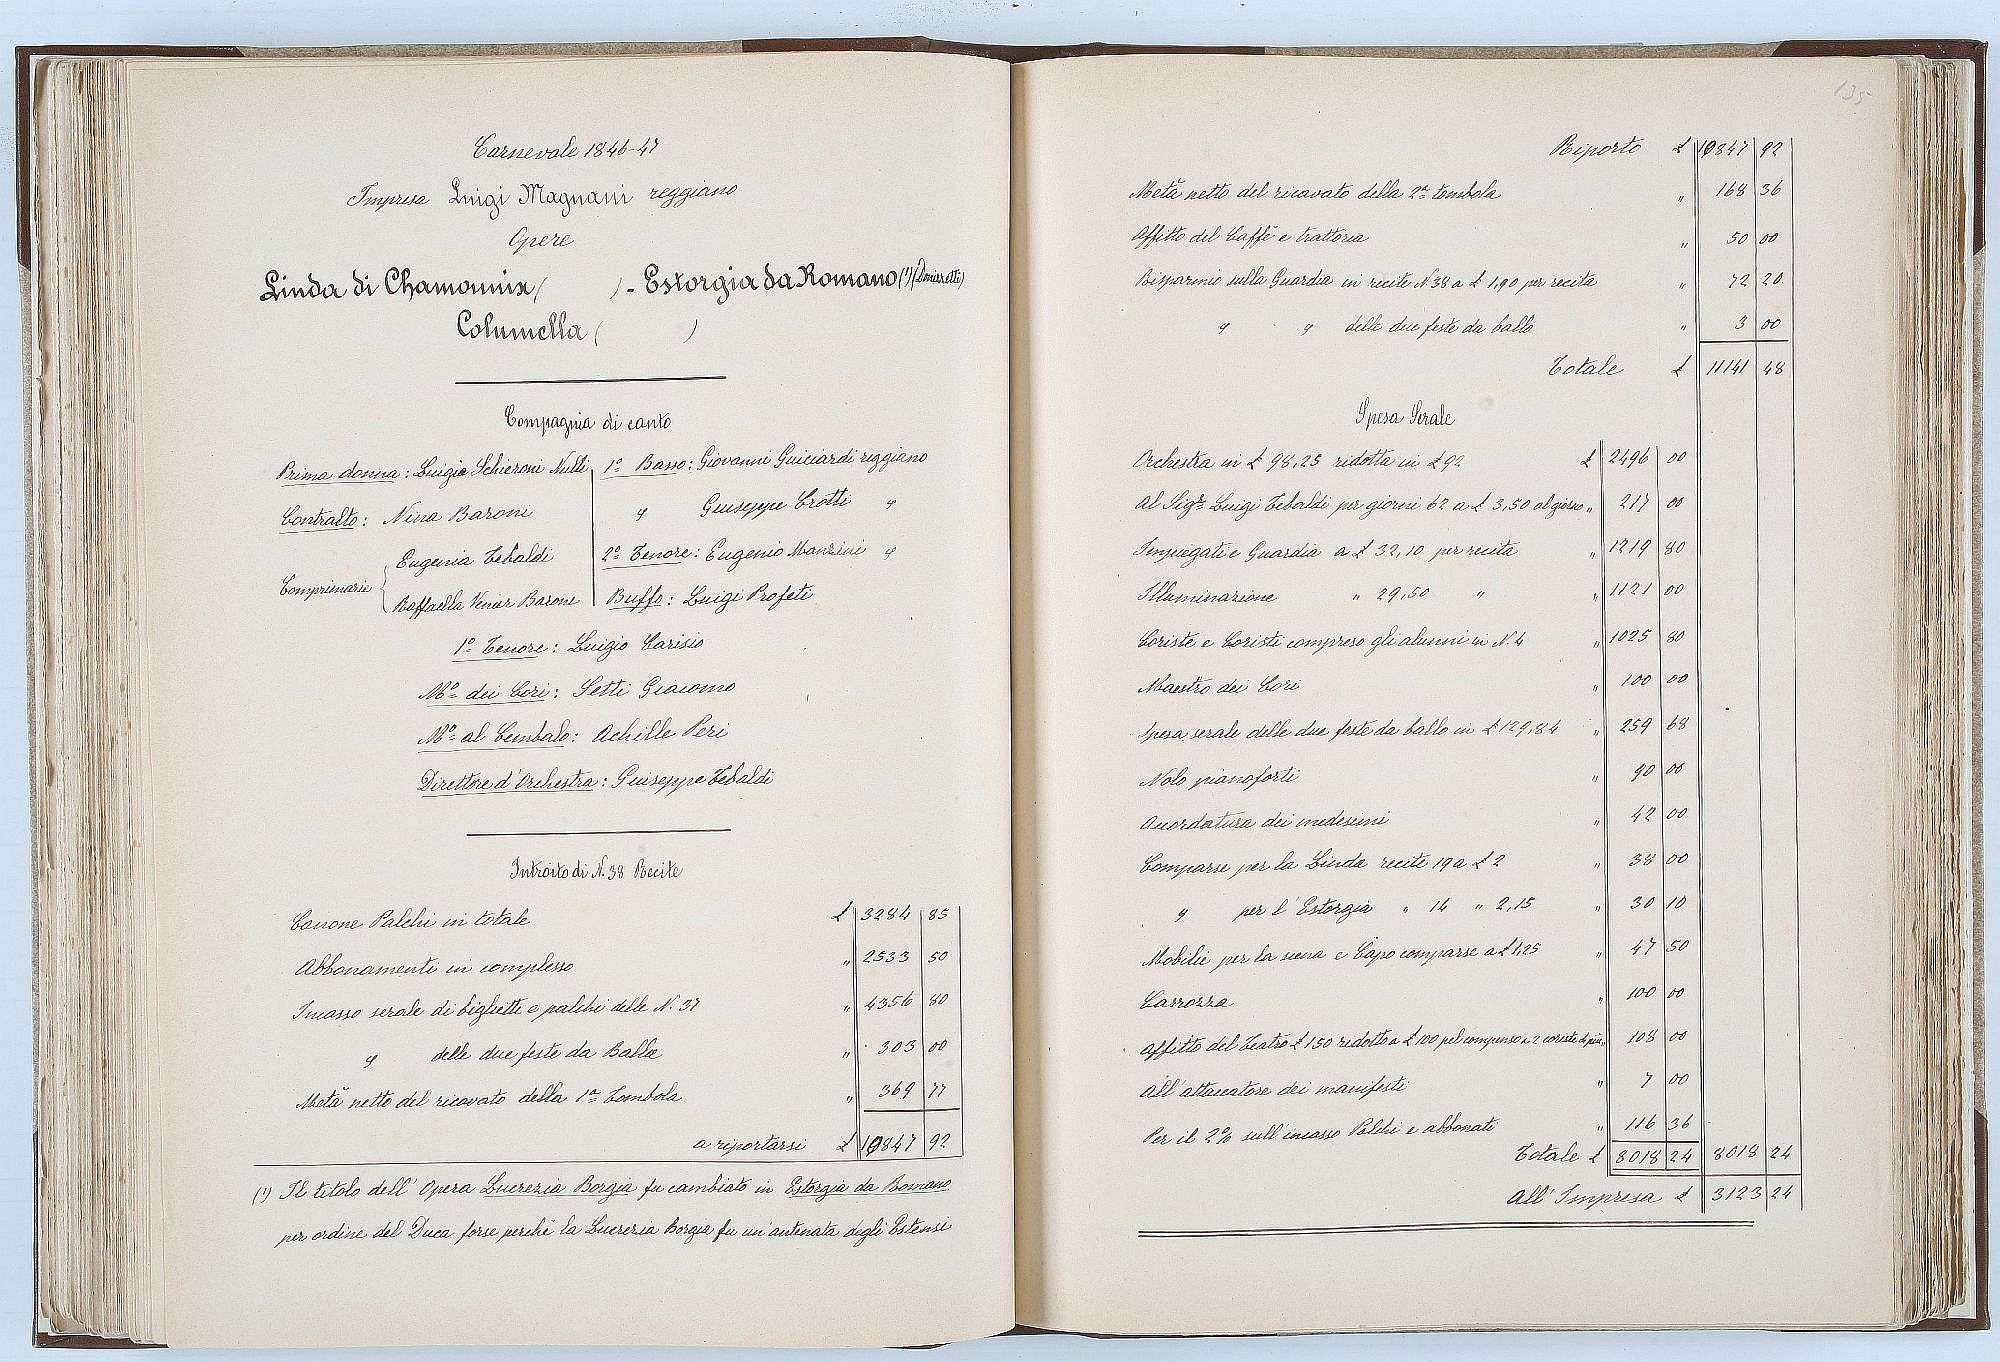 Carnevale 1846-47
Impresa Luigi Magnani reggiano
Opere
Linda di Chamounix ( ) - Estorgia da Romano (¹) (Donizetti)
Columella ( )
Compagnia di canto
Prima donna: Luigia Schieroni Nulli
Contralto: Nina Baroni
Comprimarie { Eugenia Tebaldi
Raffaella Venier Barone
1º Basso: Giovanni Guiciardi reggiano
" Giuseppe Crotti "
2º Tenore: Eugenio Manzini "
Buffo: Luigi Profeti
1º Tenore: Luigio Carisio
Mº dei Cori: Setti Giacomo
Mº al Cembalo: Achille Peri
Direttore d'Orchestra: Giuseppe Tebaldi
Introito di N. 38 Recite
Canone Palchi in totale £ 3284 85
Abbonamenti in complesso " 2533 50
Incasso serale di biglietti e palchi delle N. 37 " 4356 80
" delle due feste da Balla " 303 00
Metà netto del ricavato della 1ª Tombola " 369 77
a riportarsi £ 10847 92
(¹) Il titolo dell'Opera Lucrezia Borgia fu cambiato in Estorgia da Romano
per ordine del Duca forse perchè la Lucrezia Borgia fu un'antenata degli Estensi
135
Riporto £ 10847 92
Metà netto del ricavato della 2ª tombola " 168 36
Affitto del Caffè e trattoria " 50 00
Risparmio sulla Guardia in recite N 38 a £ 1,90 per recita " 72 20
" " delle due feste da ballo " 3 00
Totale £ 11141 48
Spesa Serale
Orchestra in £ 98,25 ridotta in £ 92 £ 2496 00
Al Sigr Luigi Tebaldi per giorni 62 a £ 3,50 al giorno " 217 00
Impiegati e Guardia a £ 32,10 per recita " 1219 80
Illuminazione " 29,50 " " 1121 00
Coriste e Coristi compreso gli alunni in N. 4 " 1025 80
Maestro dei Cori " 100 00
Spesa serale delle due feste da ballo in £ 129,84 " 259 68
Nolo pianoforti " 90 00
Acordatura dei medesimi " 42 00
Comparse per la Linda recite 19 a £ 2 " 38 00
" per l'Estorgia " 14 " 2,15 " 30 10
Mobilie per la scena e Capo comparse a £ 1,25 " 47 50
Carrozza " 100 00
Affitto del Teatro £ 150 ridotto a £ 100 pel compenso a 2 coriste di più " 108 00
All'attaccatore dei manifesti " 7 00
Per il 2% sull'incasso Palchi e abbonati " 116 36
Totale £ 8018 24 8018 24
All'Impresa £ 3123 24